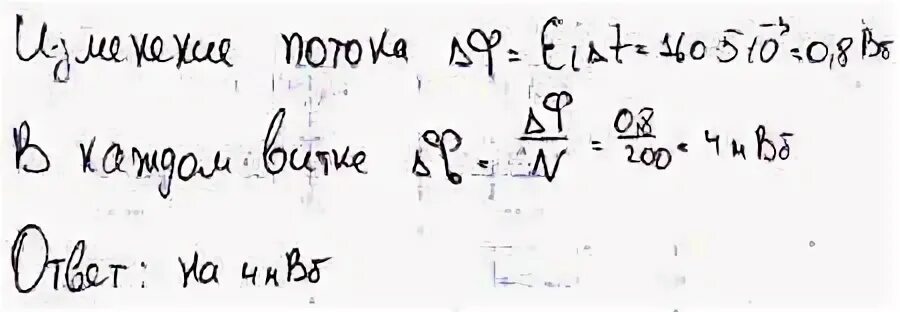 Изменение потока Δφ = Ɛi Δt = 160·5·10⁻³ = 0,8 Вб
В каждом витке Δφ₀ = Δφ/N = 0,8/200 = 4 мВб
Ответ: на 4 мВб